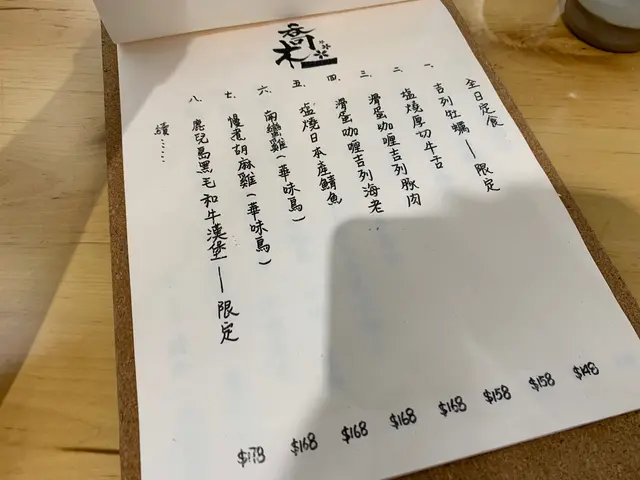 喬木
全日定食
一、吉列牡蠣——限定 $148
二、塩燒厚切牛舌 $158
三、滑蛋咖喱吉列豚肉 $158
四、滑蛋咖喱吉列海老 $168
五、塩燒日本產鯖魚 $168
六、南蠻雞(華味鳥) $168
七、慢煮胡麻雞(華味鳥) $168
八、鹿兒島黑毛和牛漢堡——限定 $178
續……